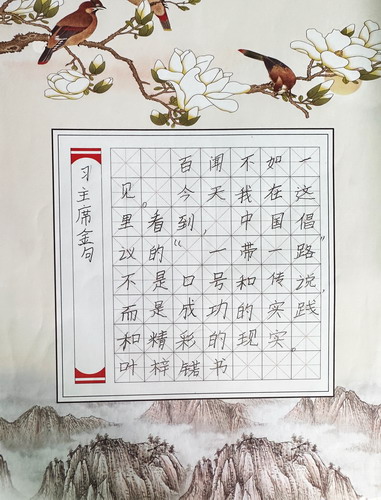 习主席金句
百闻不如一
见。今天我在这
里看到，中国倡
议的“一带一路”
不是口号和传说，
而是成功的实践
和精彩的现实。
叶梓锴书